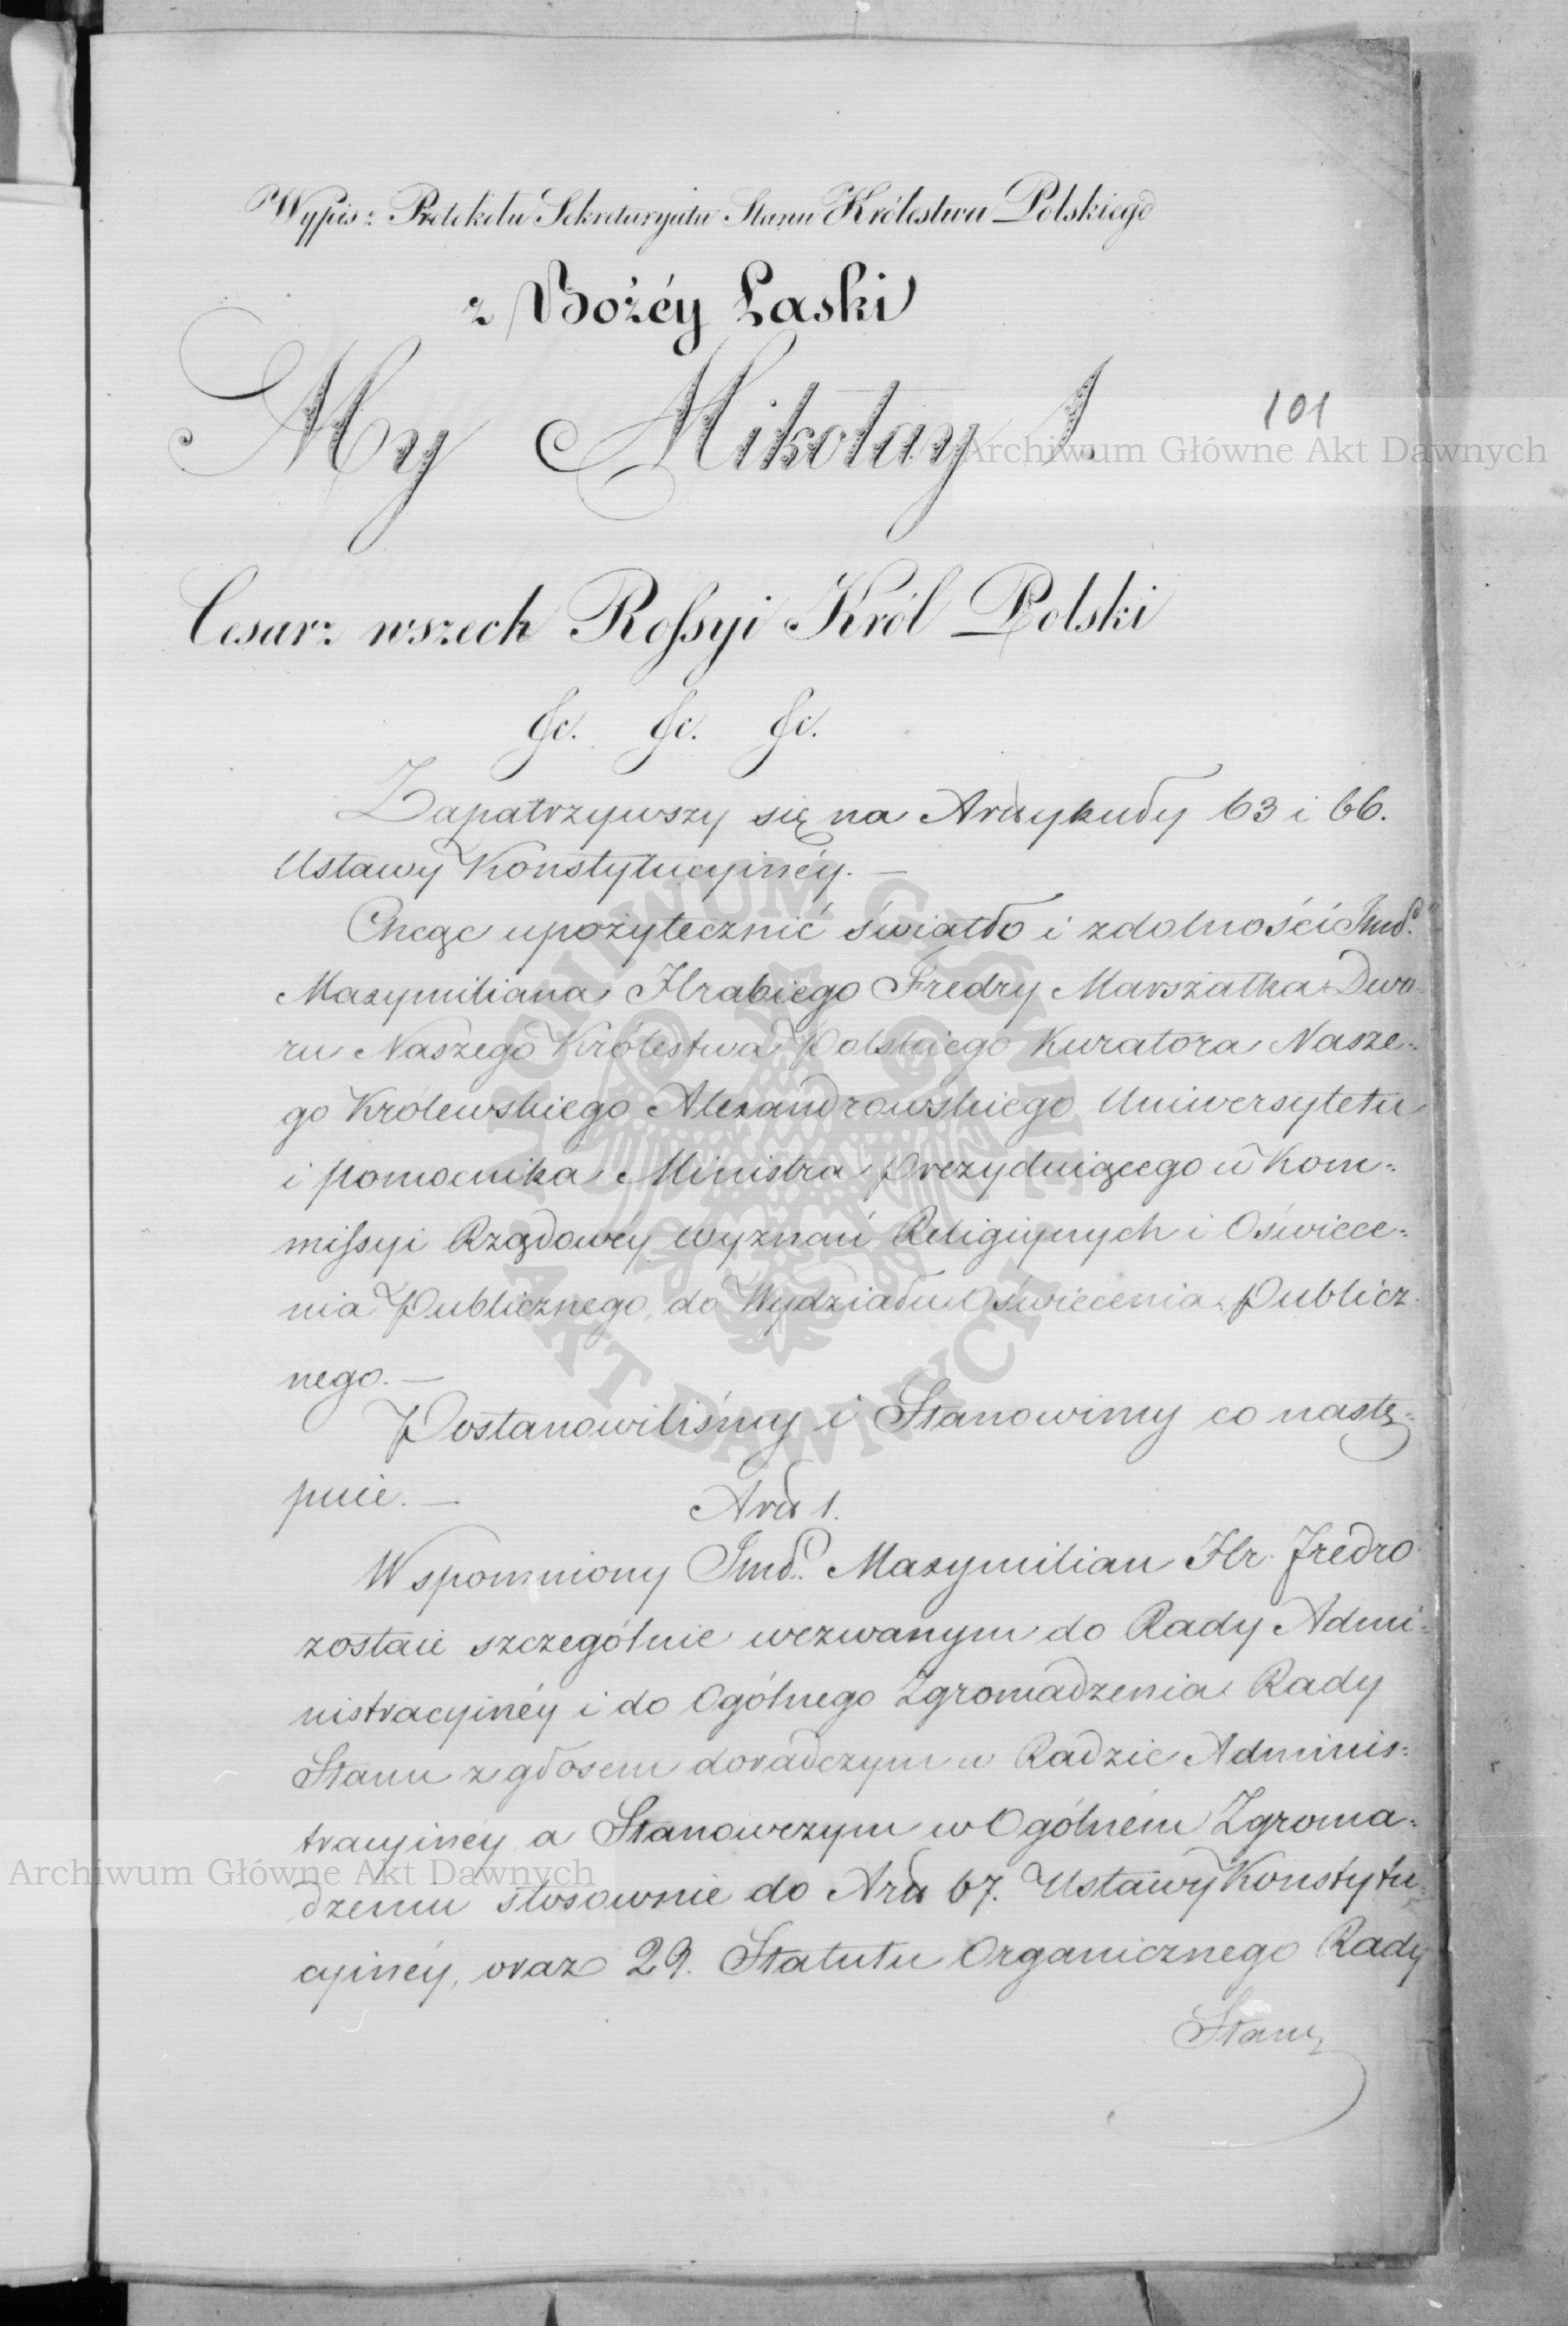 Wypis z Protokołu Sekretaryatu Stanu Królestwa Polskiego
z Bożéy Łaski
My Mikołay I.
101
Archiwum Główne Akt Dawnych
Cesarz wszech Rossyi Król Polski
&c. &c. &c.
Zapatrzywszy się na Artykuły 63 i 66.
Ustawy Konstytucyinéy. —
Chcąc upożytecznić światło i zdolności
Maxymiliana Hrabiego Fredry Marszałka Dwo-
ru Naszego Królestwa Polskiego Kuratora Nasze-
go Królewskiego Alexandrowskiego Uniwersytetu
i pomocnika Ministra prezyduiącego w Kom-
missyi Rządowéy Wyznań Religiynych i Oświece-
nia Publicznego, do Wydziału Oświecenia Publicz-
nego. —
Postanowiliśmy i Stanowimy co nastę-
puie. —
Art 1.
Wspomniony Maxymilian Hr. Fredro
zostaie szczególnie wezwanym do Rady Admi-
nistracyinéy i do Ogólnego Zgromadzenia Rady
Stanu z głosem doradczym w Radzie Adminis-
tracyinéy a Stanowczym w Ogólném Zgroma-
Archiwum Główne Akt Dawnych
dzeniu stosownie do Art 67. Ustawy Konstytu-
cyinéy, oraz 29. Statutu Organicznego Rady
Stanu
ARCHIWUM GŁÓWNE AKT DAWNYCH